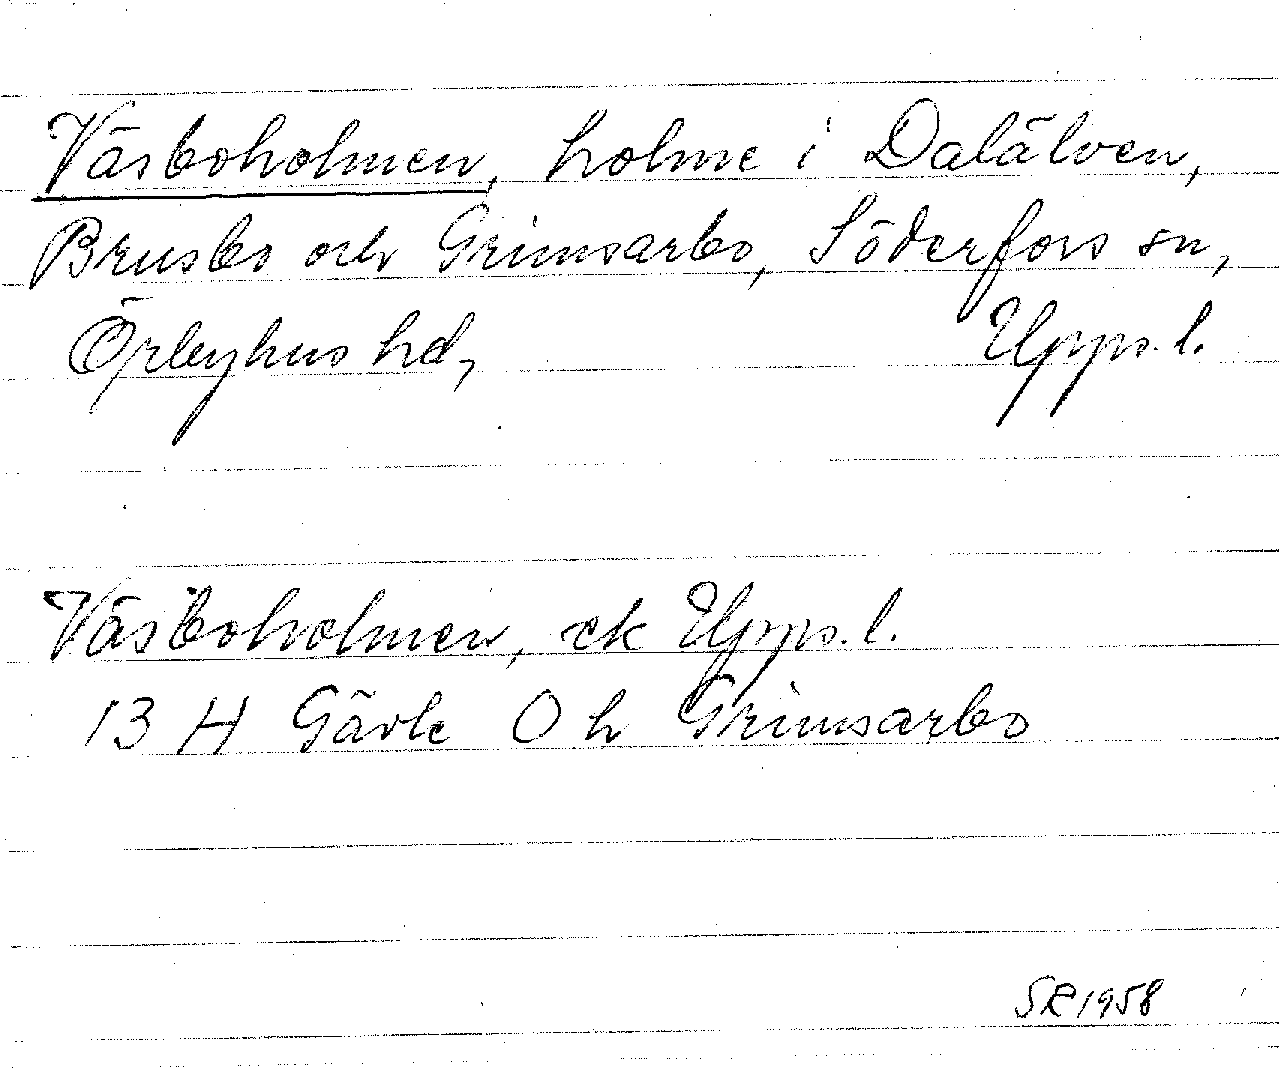 Väsboholmen, holme i Dalälven,
Brusbo och Grimsarbo, Söderfors sn,
Örbyhus hd, Upps. l.
Väsboholmen, ek Upps. l.
13 H Gävle 0 h Grimsarbo
SR 1958